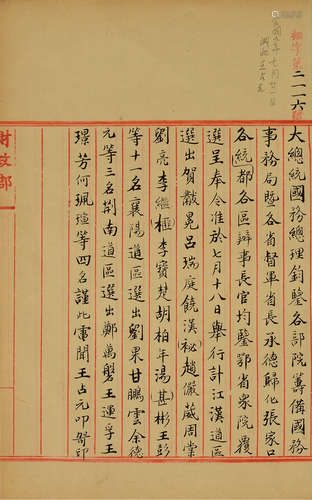 相字第二一一六號
七月廿一日
湖北王占元
大總統國務總理鈞鑒各部院籌備國務
事務局暨各省督軍省長承德歸化張家口
各(統)都各區辦事長官均鑒鄂省眾院覆
選呈奉令准於七月十八日舉行計江漢道區
選出賀黻冕呂瑞庭饒漢祕趙儼葳周棠
劉亮李繼楨李寶楚胡柏年湯(甚)彬王彭
等十一名襄陽道區選出劉果甘鵬雲余德
元等三名荊南道區選出鄭萬瞻王運孚王
璟芳何珮瑄等四名謹此電聞王占元叩哿印
財政部